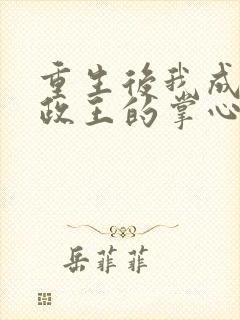 重生後我成
政王的掌心
岳菲菲